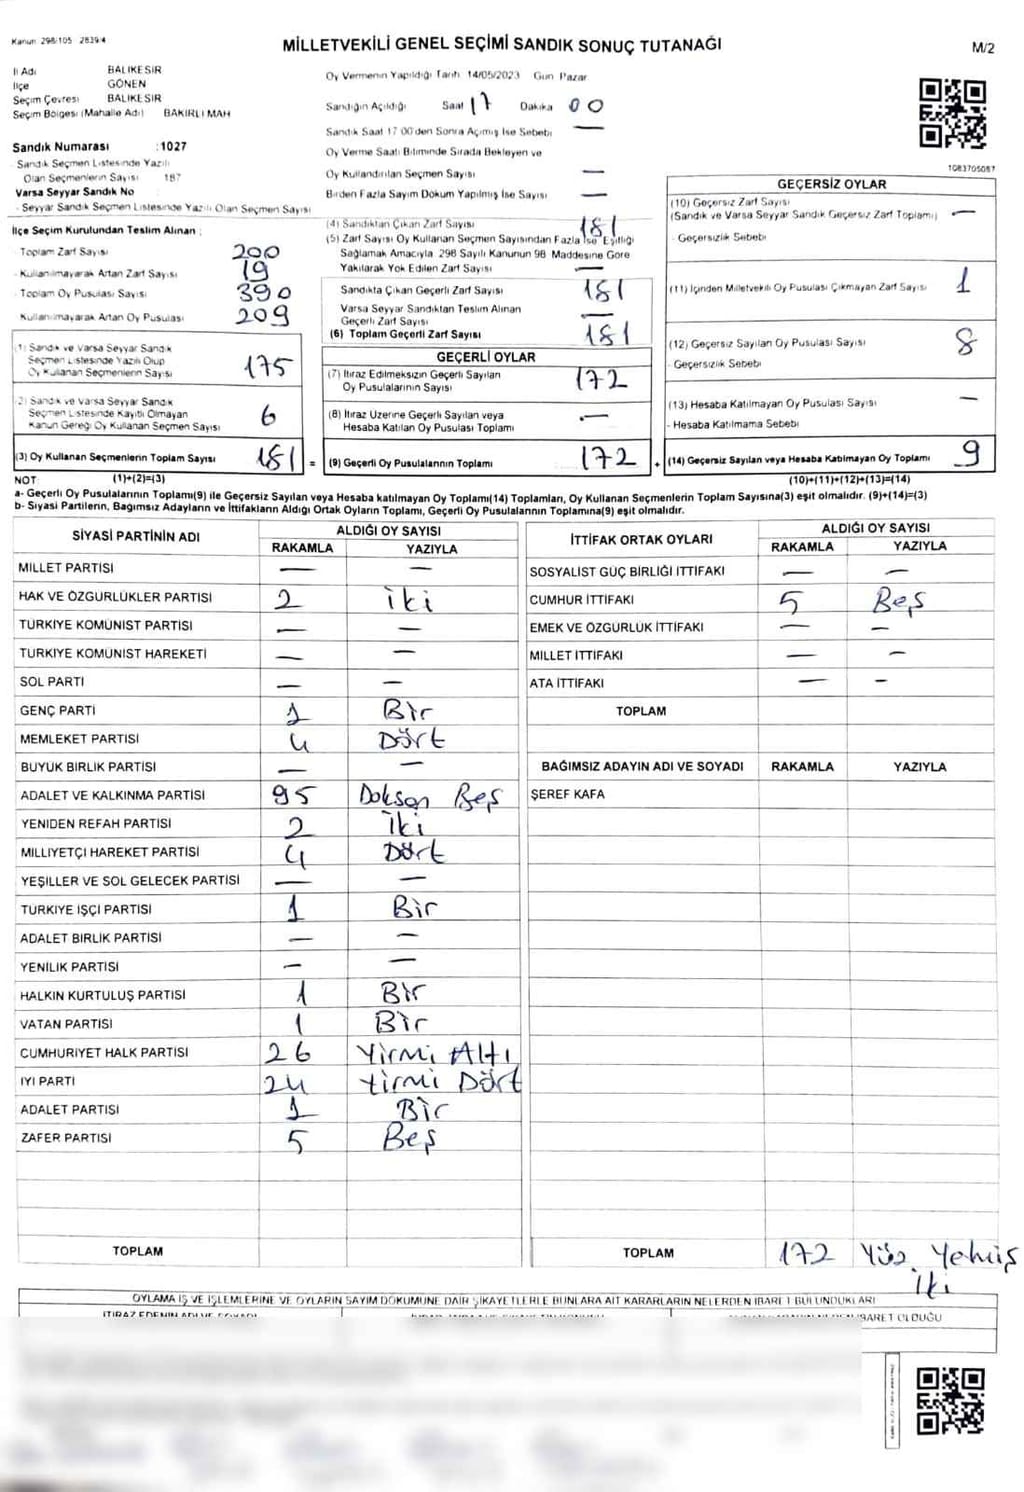 Kanun 298/105 2839/4
MİLLETVEKİLİ GENEL SEÇİMİ SANDIK SONUÇ TUTANAĞI
M/2
İl Adı BALIKESİR
İlçe GÖNEN
Seçim Çevresi BALIKESİR
Seçim Bölgesi (Mahalle Adı) BAKIRLI MAH
Sandık Numarası :1027
Sandık Seçmen Listesinde Yazılı
Olan Seçmenlerin Sayısı 187
Varsa Seyyar Sandık No
- Seyyar Sandık Seçmen Listesinde Yazılı Olan Seçmen Sayısı
Oy Vermenin Yapıldığı Tarih 14/05/2023 Gün Pazar
Sandığın Açıldığı Saat 17 Dakika 00
Sandık Saat 17 00'den Sonra Açımış İse Sebebi —
Oy Verme Saati Bitiminde Sırada Bekleyen ve
Oy Kullandırılan Seçmen Sayısı —
Birden Fazla Sayım Döküm Yapılmış İse Sayısı —
1083705087
İlçe Seçim Kurulundan Teslim Alınan :
- Toplam Zarf Sayısı 200
- Kullanılmayarak Artan Zarf Sayısı 19
- Toplam Oy Pusulası Sayısı 390
- Kullanılmayarak Artan Oy Pusulası 209
(1) Sandık ve Varsa Seyyar Sandık
Seçmen Listesinde Yazılı Olup
Oy Kullanan Seçmenlerin Sayısı 175
(2) Sandık ve Varsa Seyyar Sandık
Seçmen Listesinde Kayıtlı Olmayan
Kanun Gereği Oy Kullanan Seçmen Sayısı 6
(3) Oy Kullanan Seçmenlerin Toplam Sayısı 181 =
(4) Sandıktan Çıkan Zarf Sayısı 181
(5) Zarf Sayısı Oy Kullanan Seçmen Sayısından Fazla İse Eşitliği
Sağlamak Amacıyla 298 Sayılı Kanunun 98 Maddesine Göre
Yakılarak Yok Edilen Zarf Sayısı —
Sandıkta Çıkan Geçerli Zarf Sayısı 181
Varsa Seyyar Sandıktan Teslim Alınan
Geçerli Zarf Sayısı —
(6) Toplam Geçerli Zarf Sayısı 181
GEÇERLİ OYLAR
(7) İtiraz Edilmeksizin Geçerli Sayılan
Oy Pusulalarının Sayısı 172
(8) İtiraz Üzerine Geçerli Sayılan veya
Hesaba Katılan Oy Pusulası Toplamı —
(9) Geçerli Oy Pusulalarının Toplamı 172 +
GEÇERSİZ OYLAR
(10) Geçersiz Zarf Sayısı
(Sandık ve Varsa Seyyar Sandık Geçersiz Zarf Toplamı) —
- Geçersizlik Sebebi
(11) İçinden Milletvekili Oy Pusulası Çıkmayan Zarf Sayısı 1
(12) Geçersiz Sayılan Oy Pusulası Sayısı 8
- Geçersizlik Sebebi
(13) Hesaba Katılmayan Oy Pusulası Sayısı —
- Hesaba Katılmama Sebebi
(14) Geçersiz Sayılan veya Hesaba Katılmayan Oy Toplamı 9
NOT: (1)+(2)=(3) (10)+(11)+(12)+(13)=(14)
a- Geçerli Oy Pusulalarının Toplamı(9) ile Geçersiz Sayılan veya Hesaba katılmayan Oy Toplamı(14) Toplamları, Oy Kullanan Seçmenlerin Toplam Sayısına(3) eşit olmalıdır. (9)+(14)=(3)
b- Siyasi Partilerin, Bağımsız Adayların ve İttifakların Aldığı Ortak Oyların Toplamı, Geçerli Oy Pusulalarının Toplamına(9) eşit olmalıdır.
SİYASİ PARTİNİN ADI ALDIĞI OY SAYISI
RAKAMLA YAZIYLA
MİLLET PARTİSİ — —
HAK VE ÖZGÜRLÜKLER PARTİSİ 2 İki
TÜRKİYE KOMÜNİST PARTİSİ — —
TÜRKİYE KOMÜNİST HAREKETİ — —
SOL PARTİ — —
GENÇ PARTİ 1 Bir
MEMLEKET PARTİSİ 4 Dört
BÜYÜK BİRLİK PARTİSİ — —
ADALET VE KALKINMA PARTİSİ 95 Doksan Beş
YENİDEN REFAH PARTİSİ 2 İki
MİLLİYETÇİ HAREKET PARTİSİ 4 Dört
YEŞİLLER VE SOL GELECEK PARTİSİ — —
TÜRKİYE İŞÇİ PARTİSİ 1 Bir
ADALET BİRLİK PARTİSİ — —
YENİLİK PARTİSİ — —
HALKIN KURTULUŞ PARTİSİ 1 Bir
VATAN PARTİSİ 1 Bir
CUMHURİYET HALK PARTİSİ 26 Yirmi Altı
İYİ PARTİ 24 Yirmi Dört
ADALET PARTİSİ 1 Bir
ZAFER PARTİSİ 5 Beş
TOPLAM
İTTİFAK ORTAK OYLARI ALDIĞI OY SAYISI
RAKAMLA YAZIYLA
SOSYALİST GÜÇ BİRLİĞİ İTTİFAKI — —
CUMHUR İTTİFAKI 5 Beş
EMEK VE ÖZGÜRLÜK İTTİFAKI — —
MİLLET İTTİFAKI — —
ATA İTTİFAKI — —
TOPLAM
BAĞIMSIZ ADAYIN ADI VE SOYADI RAKAMLA YAZIYLA
ŞEREF KAFA
TOPLAM 172 Yüz Yetmiş
İki
OYLAMA İŞ VE İŞLEMLERİNE VE OYLARIN SAYIM DÖKÜMÜNE DAİR ŞİKAYETLERLE BUNLARA AİT KARARLARIN NELERDEN İBARET BULUNDUKLARI
İTİRAZ EDENİN ADI VE SOYADI
İBARET OLDUĞU